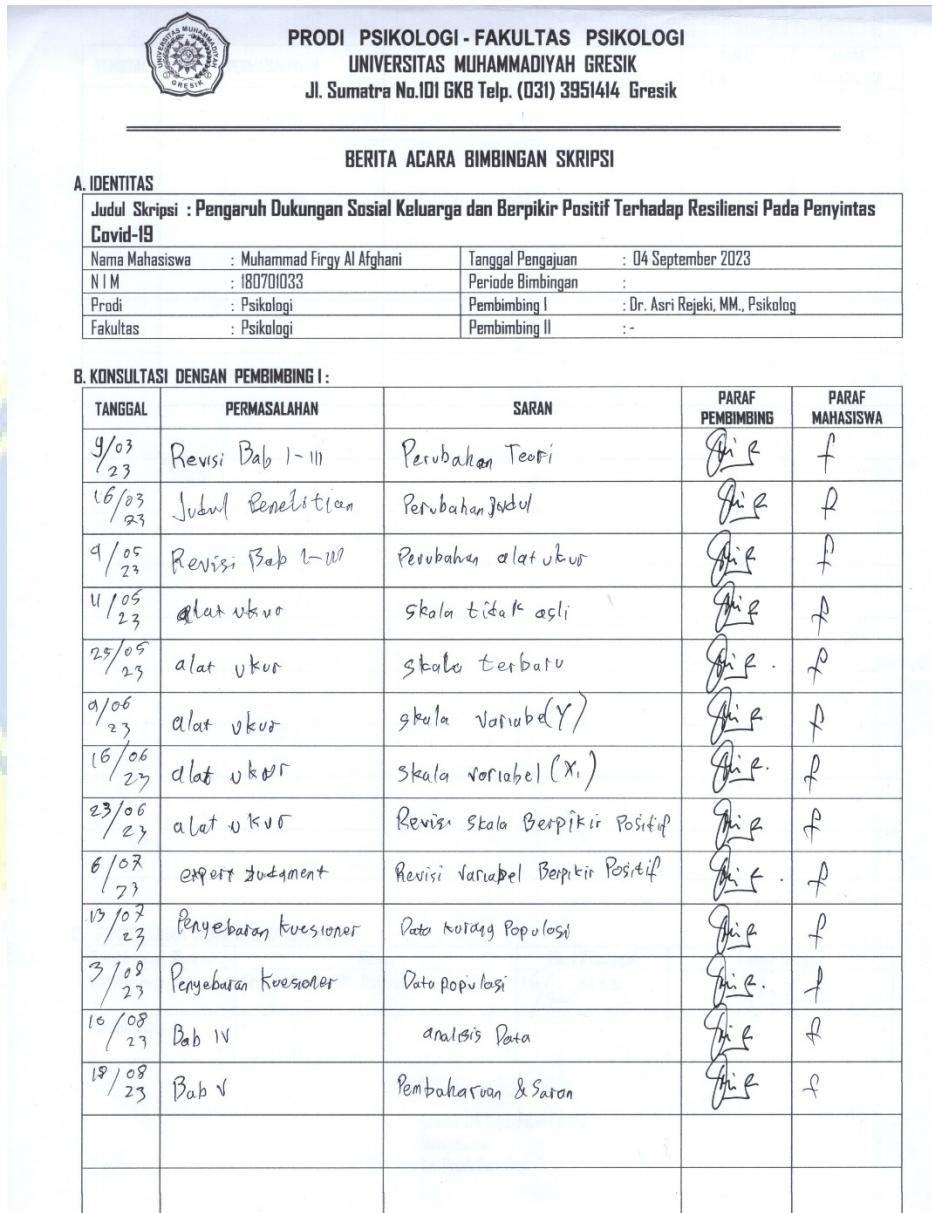 UNIVERSITAS MUHAMMADIYAH
GRESIK
PRODI PSIKOLOGI - FAKULTAS PSIKOLOGI
UNIVERSITAS MUHAMMADIYAH GRESIK
Jl. Sumatra No.101 GKB Telp. (031) 3951414 Gresik
BERITA ACARA BIMBINGAN SKRIPSI
A. IDENTITAS
Judul Skripsi : Pengaruh Dukungan Sosial Keluarga dan Berpikir Positif Terhadap Resiliensi Pada Penyintas
Covid-19
Nama Mahasiswa : Muhammad Firgy Al Afghani Tanggal Pengajuan : 04 September 2023
N I M : 180701033 Periode Bimbingan :
Prodi : Psikologi Pembimbing I : Dr. Asri Rejeki, MM., Psikolog
Fakultas : Psikologi Pembimbing II : -
B. KONSULTASI DENGAN PEMBIMBING I :
TANGGAL PERMASALAHAN SARAN PARAF PEMBIMBING PARAF MAHASISWA
9/03 23 Revisi Bab I-III Perubahan Teori
16/03 23 Judul Penelitian Perubahan Judul
9/05 23 Revisi Bab I-III Perubahan alat ukur
11/05 23 alat ukur skala tidak asli
25/05 23 alat ukur skala terbaru
9/06 23 alat ukur skala Variabe(Y)
16/06 23 alat ukur skala variabel (X1)
23/06 23 alat ukur Revisi Skala Berpikir Positif
6/07 23 expert Judgment Revisi Variabel Berpikir Positif
13/07 23 Penyebaran Kuesioner Data kurang Populasi
3/08 23 Penyebaran Kuesioner Data populasi
16/08 23 Bab IV analisis Data
18/08 23 Bab V Pembaharuan & Saran